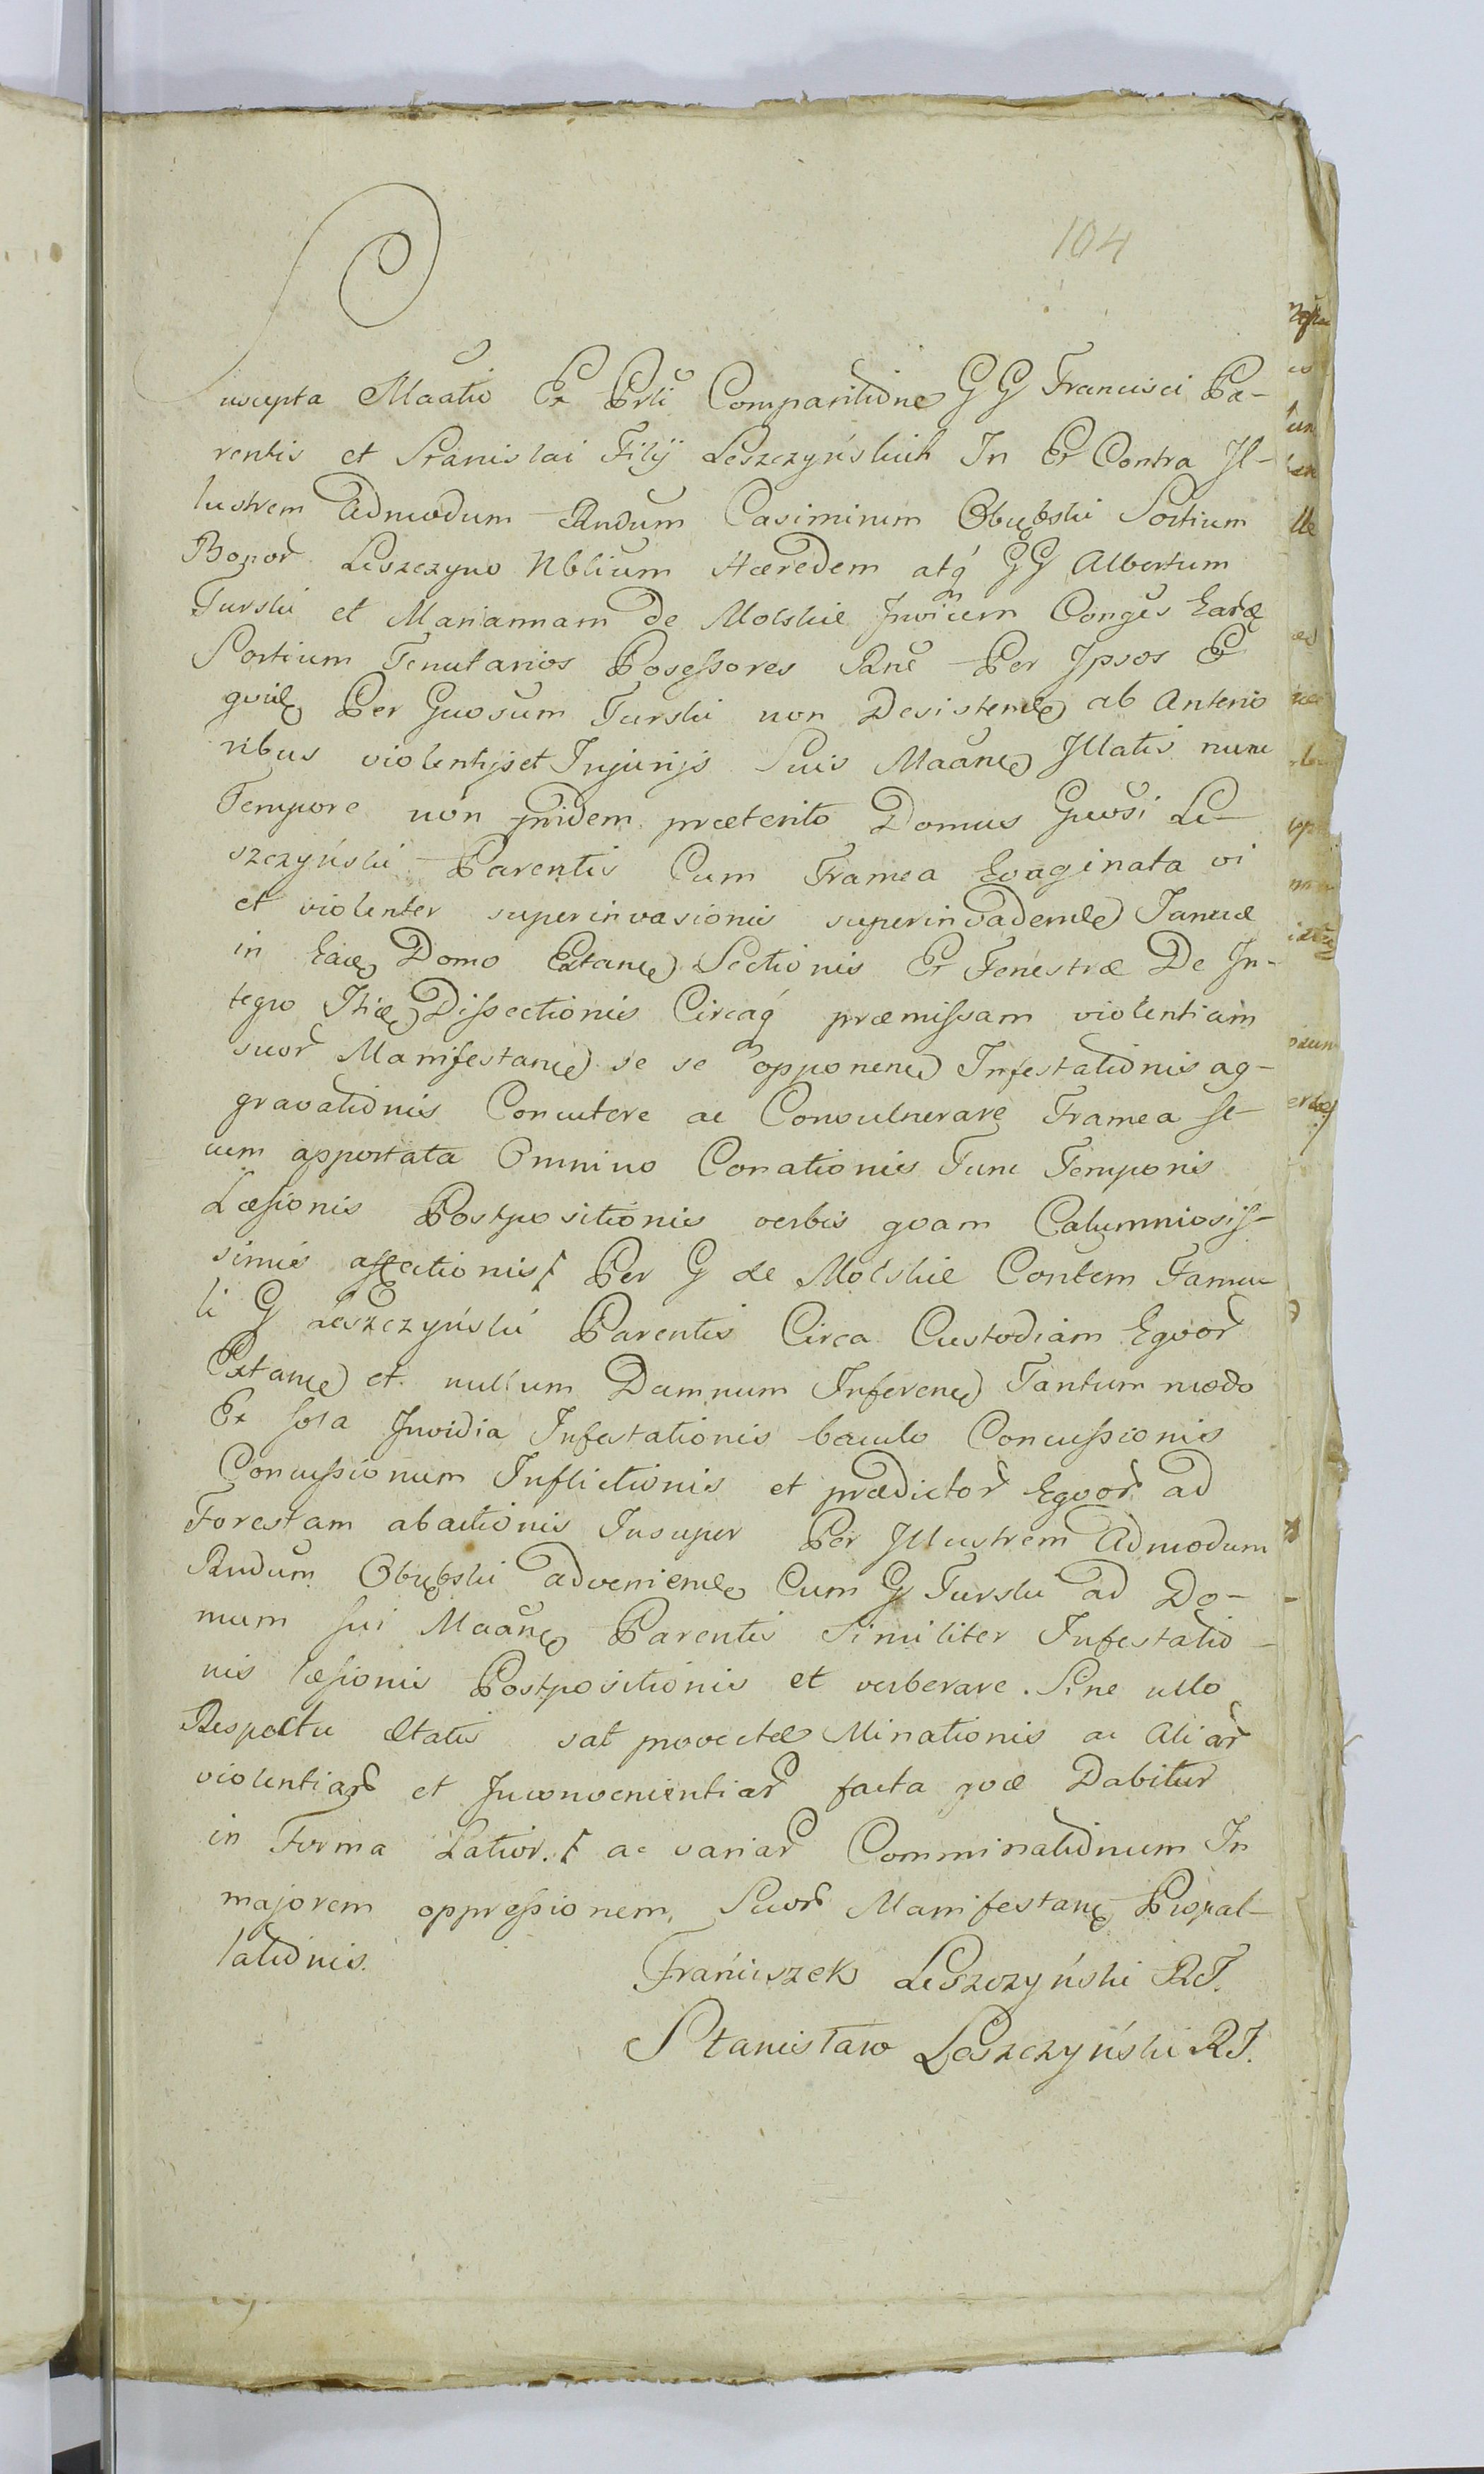 104
Suscepta Maãtio Ex Prli Comparitione GG Francisci Pa-
rentis et Stanislai Filij Leszczyńskich In Et Contra Il-
lustrem Admodum Rndum Casimirum Obrębski Sortium
Bonor Leszczyno Nblium Hæredem atq GG Albertum
Turski et Mariannam de Molskie Invicem Conges Earde
Sortium Tenutarios Possessores Rne Per Ipsos Et
quide Per Guosum Turski non Desistende ab Anterio
ribus violentijs et Injurijs Suis Maane Illatis nunc
Tempore non pridem præterito Domus Guosi Le-
szczyński Parentis Cum Framea Evaginata vi
et violenter superinvasionis superinvadende Januæ
in Eade Domo Extane Sectionis Et Fenestræ De In-
tegro Itide Dissectionis Circaq præmissam violentiam
suor Manifestane se se opponene Infestationis ag-
gravationis Concutere ac Convulnerare Framea se-
cum apportata Omnino Conationis Tunc Temporis
Læsionis Postpositionis verbis quam Calumniosis-
simis affectionis Per G de Molskie Contem Famu-
li G Leszczyński Parentis Circa Custodiam Equor
Extane et nullum Damnum Inferene Tantum modo
Ex sola Invidia Infestationis baculo Concussionis
Concussionum Inflictionis et prædictor Equor ad
Forestam abactionis Insuper Per Illustrem Admodum
Rndum Obrębski adveniende Cum G Turski ad Do-
mum sui Maane Parentis Similiter Infestatio-
nis læsionis Postpositionis et verberare Sine ullo
Respectu Ætatis sat provectæ Minationis ac Aliar
violentiar et Inconvenientiar facta quæ Dabitur
in Forma Latior. ac variar Comminationum In
majorem oppressionem Suor Manifestane Propal-
lationis.
Franciszek Leszczyński RJ.
Stanisław Leszczyński RJ.